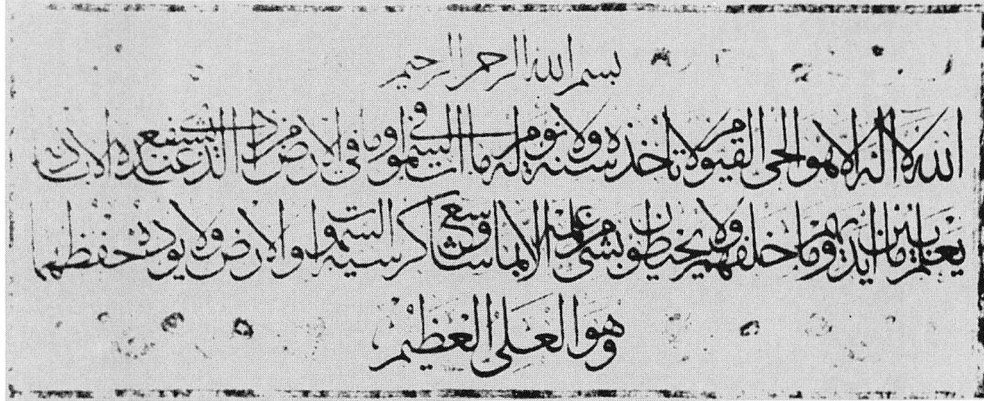 بسم الله الرحمن الرحيم
الله لا اله الا هو الحي القيوم لا تأخذه سنة ولا نوم له ما في السموات وما في الارض من ذا الذي يشفع عنده الا باذنه
يعلم ما بين ايديهم وما خلفهم ولا يحيطون بشئ من علمه الا بما شاء وسع كرسيه السموات والارض ولا يؤده حفظهما
وهو العلي العظيم